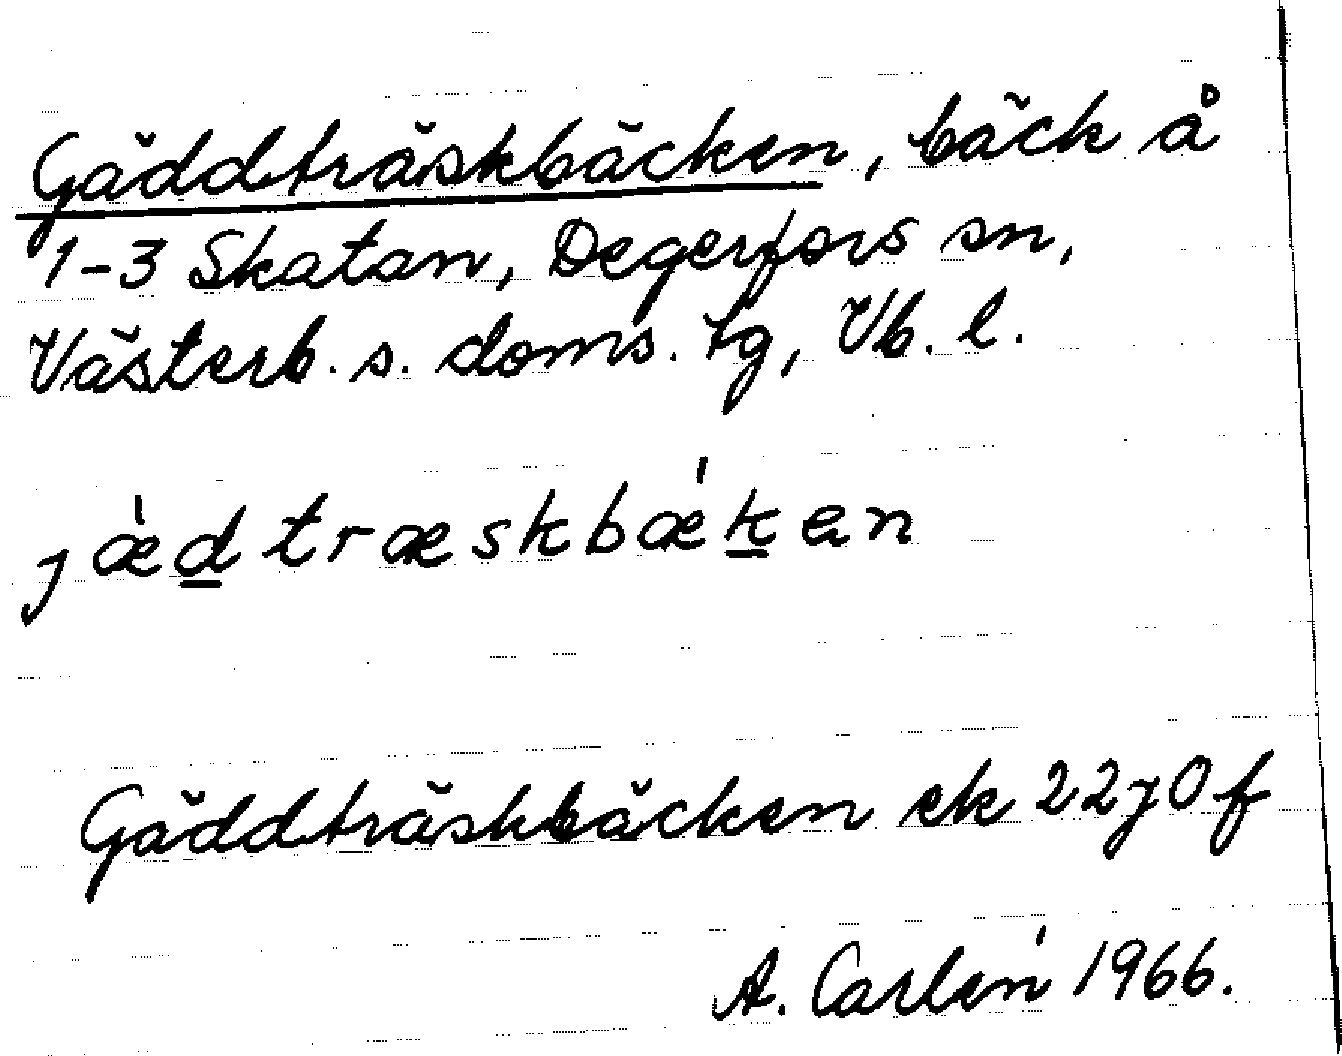 Gäddträskbäcken, bäck å
1-3 Skatan, Degerfors sn,
Västerb. s. doms. tg, Vb. l.
jǽdtræskbǽken
Gäddträskbäcken ek 22j0f
A. Carlén 1966.